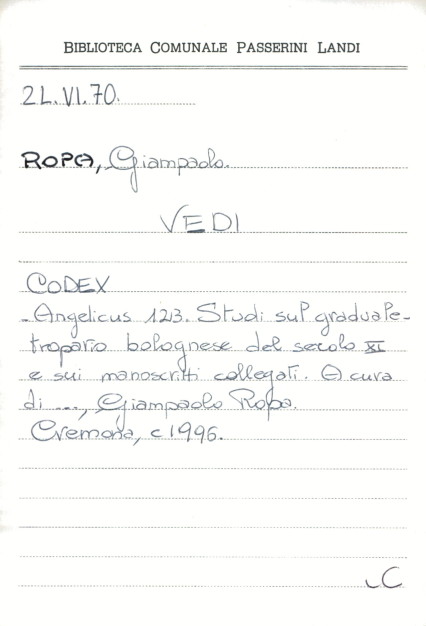 BIBLIOTECA COMUNALE PASSERINI LANDI
2L.VI.70.
ROPA, Giampaolo.
VEDI
CODEX
-Angelicus 123. Studi sul graduale-
tropario bolognese del secolo XI
e sui manoscritti collegati. A cura
di ..., Giampaolo Ropa.
Cremona, c1996.
LC